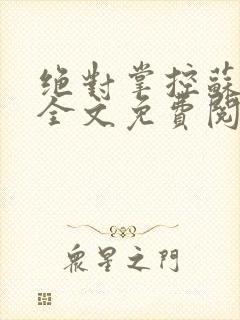 絕對掌控蘇
全文免費閱
眾星之門